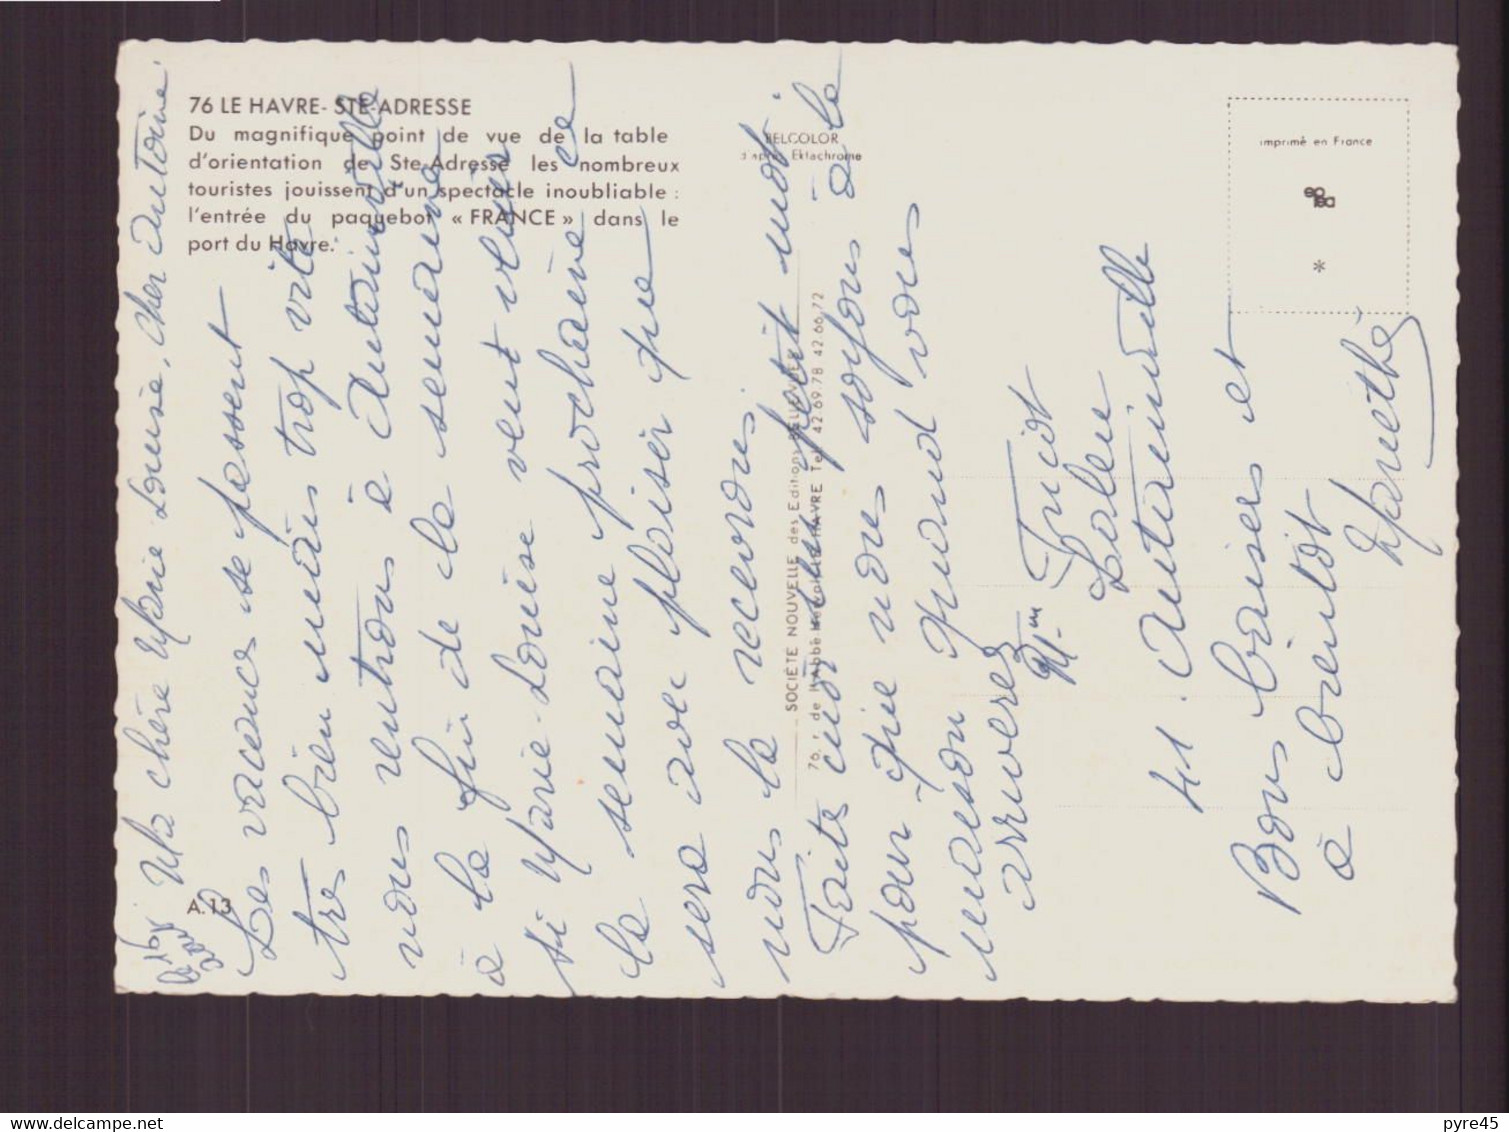 76 LE HAVRE- STE-ADRESSE
Du magnifique point de vue de la table
d'orientation de Ste-Adresse les nombreux
touristes jouissent d'un spectacle inoubliable :
l'entrée du paquebot « FRANCE » dans le
port du Havre.
BELCOLOR
d'après Ektachrome
imprimé en France
*
A. 13
SOCIÉTÉ NOUVELLE des Editions BELLEVUES
76, r. de l'Abbé LE HAVRE Tel. 42 69.78 42.66.72
Ma chère Marie Louise, Cher Antoine
Les vacances se passent
très bien mais trop vite
nous rentrons à Autainville
à la fin de la semaine
si Marie-Louise veut venir
la semaine prochaine ce
sera avec plaisir que
nous la recevrons
Faites un petit mot
pour que nous soyons à la
maison quand vous
arriverez
Mme Tricot
Autainville
41.
Bons baisers et
à bientôt
pyre45